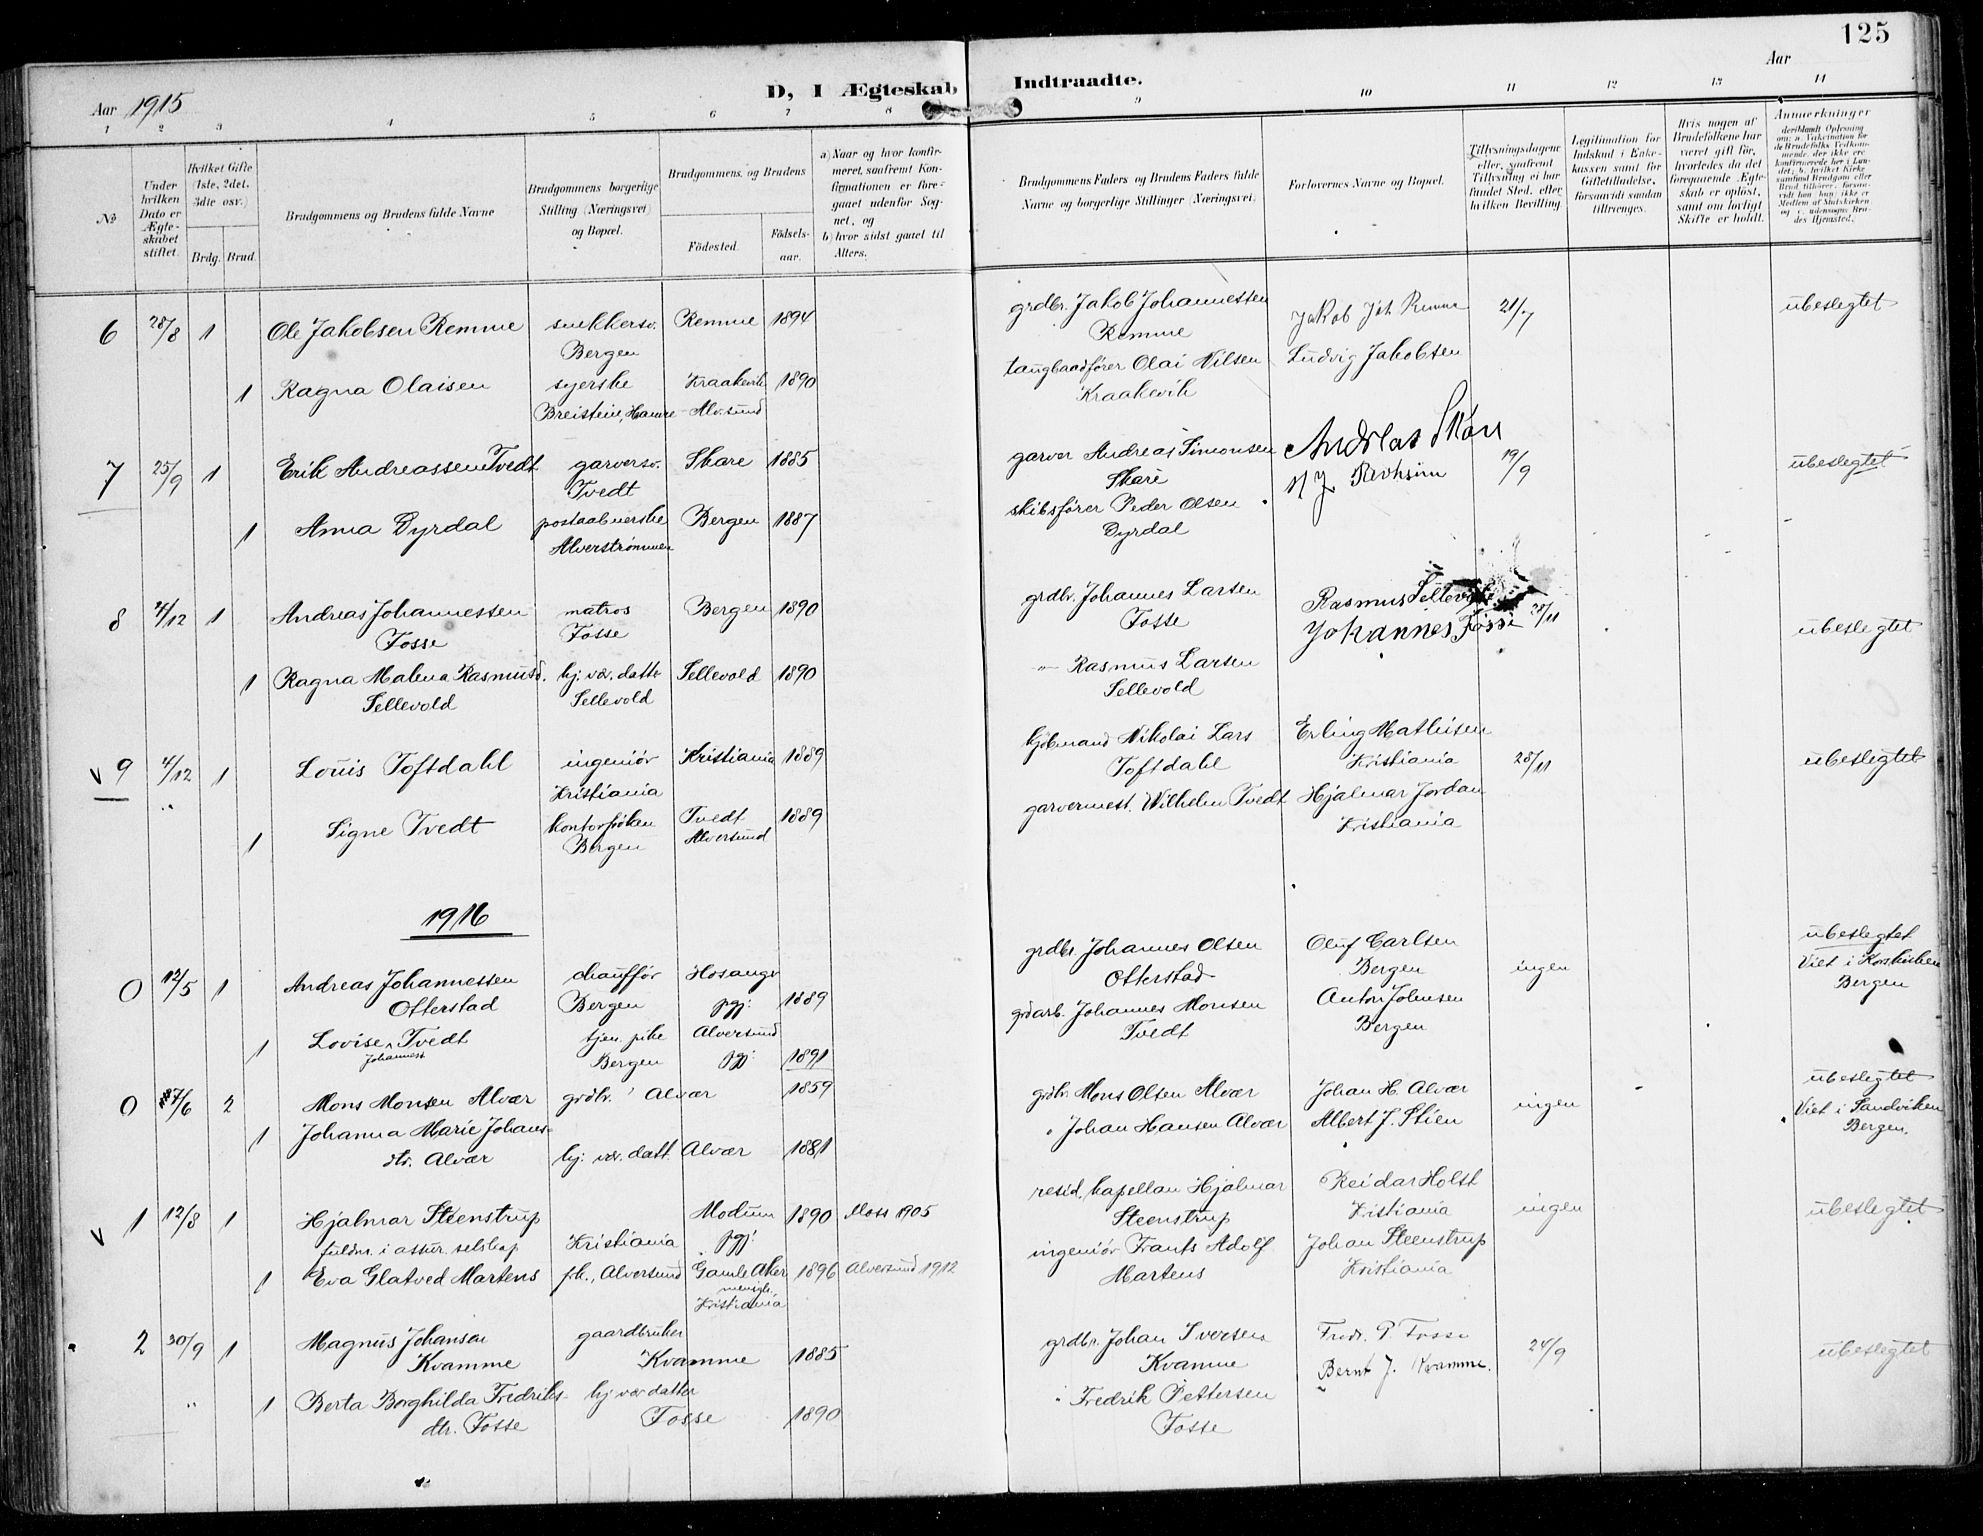 125
Aar 1915
D, I Ægteskab Indtraadte.
Aar
1 2 3 4 5 6 7 8 9 10 11 12 13 14
No
Under hvilken Dato er Ægteskabet stiftet.
Hvilket Gifte (1ste, 2det, 3die osv.)
Brdg. Brud.
Brudgommens og Brudens fulde Navne
Brudgommens borgerlige Stilling (Næringsvei) og Bopæl.
Brudgommens og Brudens
Födested. Födselsaar.
a) Naar og hvor konfirmeret, saafremt Konfirmationen er foregaaet udenfor Sognet, og
b) hvor sidst gaaet til Alters.
Brudgommens Faders og Brudens Faders fulde Navne og borgerlige Stillinger (Næringsvei)
Forlovernes Navne og Bopæl.
Tillysningsdagene eller, saafremt Tillysning ei har fundet Sted, efter hvilken Bevilling
Legitimation for Indskud i Enkekassen samt for Giftetilladelse, forsaavidt saadan tiltrænges.
Hvis nogen af Brudefolkene har været gift för, hvorledes da det foregaaende Ægteskab er oplöst, samt om lovligt Skifte er holdt.
Anmerkninger
6 28/8 1 Ole Jakobsen Remme snekkersv. Remme 1894 grdbr. Jakob Johannessen Jakob Joh Remme 21/7 ubeslegtet
Bergen Remme
1 Ragna Olaisen syerske Kraakevik 1890 taugbaadfører Olai Nilsen Ludvig Jakobsen
Breistein, Hamre Alv.sund Kraakevik
7 25/9 1 Erik Andreassen Tvedt garversv. Skare 1885 garver Andreas Simonsen Andreas Skare 19/9 ubeslegtet
Tvedt Skare
1 Anna Dyrdal postaabnerske Bergen 1887 skibsfører Peder Olsen
Alverstrømmen Dyrdal
8 4/12 1 Andreas Johannessen matros Bergen 1890 grdbr. Johannes Larsen Rasmus Sellevold 28/11 ubeslegtet
Fosse Fosse Fosse Johannes Fosse
1 Ragna Malena Rasmusd. hj. vær. datter Sellevold 1890 " Rasmus Larsen
Sellevold Sellevold Sellevold
v 9 4/12 1 Louis Toftdahl ingeniør Kristiania 1889 kjöbmand Nikolai Lars Erling Mathisen 28/11 ubeslegtet
Kristiania Toftdahl Kristiania
" 1 Signe Tvedt kontorfrøken Tvedt 1889 garvermest. Wilhelm Tvedt Hjalmar Jordan
Bergen Alversund Kristiania
1916
0 12/5 1 Andreas Johannessen chauffør Hosanger 1889 grdbr. Johannes Olsen Oluf Carlsen ingen ubeslegtet
Otterstad Bergen pgj: Otterstad Bergen Viet i Korskirken Bergen
1 Lovise Johannesd. Tvedt tjen. pike Alversund 1891 grdarb. Johannes Monsen Anton Johnsen
Bergen pgj: Tvedt Bergen
0 7/6 2 Mons Monsen Alvær grdbr. Alvær 1859 grdbr Mons Olsen Alvær Johan H. Alvær ingen ubeslegtet
Viet i Sandviken Bergen.
1 Johanna Marie Johansdtr. Alvær hj. vær. datt. Alvær 1881 " Johan Hansen Alvær Albert J. Stien
v 1 12/8 1 Hjalmar Steenstrup Modum 1890 Moss 1905 resid. kapellan Hjalmar Reidar Holst ingen ubeslegtet
fuldm. i assur. selskap Kristiania pgj: Steenstrup Kristiania
1 Eva Glatved Martens frk., Alversund Gamle Aker 1896 Alversund 1912 ingeniør Frants Adolf Johan Steenstrup
menigh. Kristiania Martens Kristiania
2 30/9 1 Magnus Johansen gaardbruker grdbr. Johan Iversen Fredr. P. Fosse 24/9 ubeslegtet
Kvamme Kvamme 1885 Kvamme Bernt J. Kvamme.
" 1 Berta Borghilda Fredriks- hj. vær datter " Fredrik Pettersen
dtr. Fosse Fosse 1890 Fosse